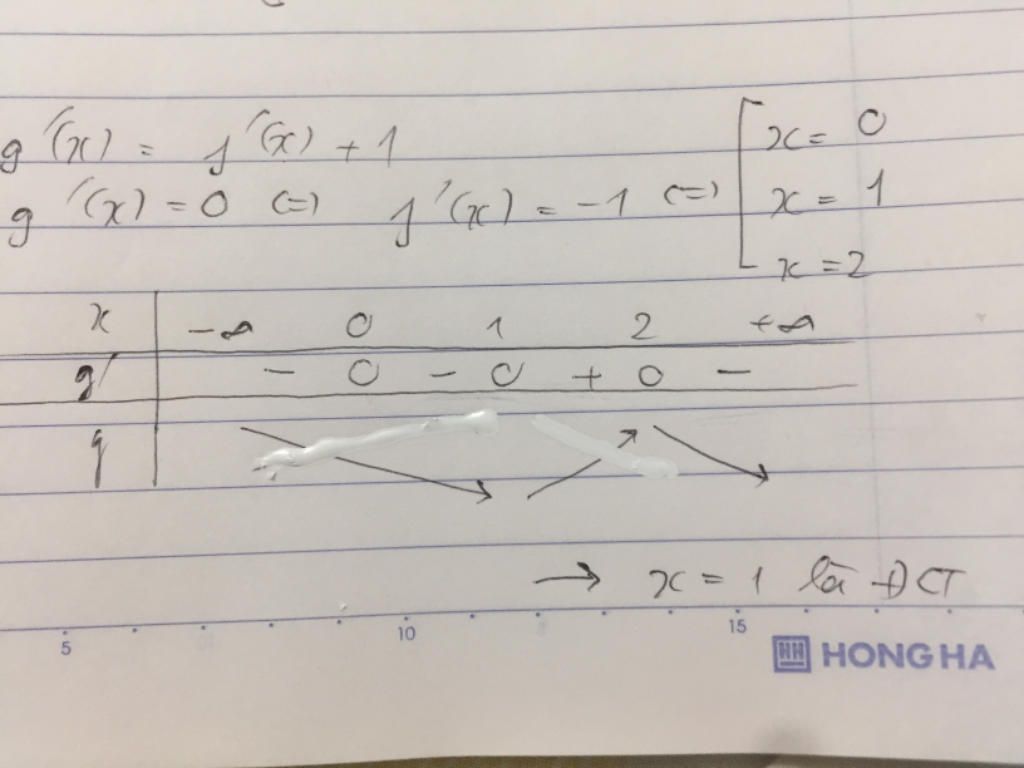 g'(x) = f'(x) + 1
g'(x) = 0 (=) f'(x) = -1 (=) [ x = 0
x = 1
x = 2
x -∞ 0 1 2 +∞
g' - 0 - 0 + 0 -
g
→ x = 1 là ĐCT
5 10 15
HH HONG HA